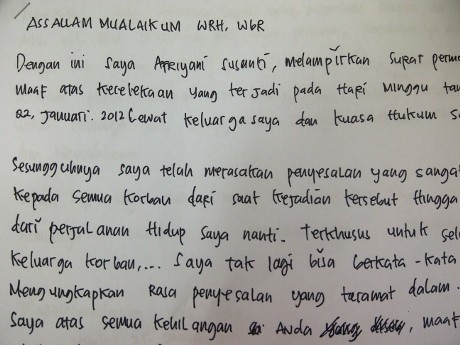 ASSALLAM MUALAIKUM WRH, WbR
Dengan ini saya Afriyani susanti, melampirkan surat perm
maaf atas kecelekaan yang terjadi pada Hari Minggu tan
22, januari. 2012 Lewat keluarga saya dan kuasa Hukum s
Sesungguhnya saya telah merasakan penyesalan yang sangat
kepada semua korban dari saat kejadian tersebut Hingga
dari perjalanan Hidup saya nanti. Terkhusus untuk sel
keluarga korban,... saya tak lagi bisa berkata-kata
Mengungkapkan Rasa penyesalan yang teramat dalam.
Saya atas semua kehilangan Anda, maaf